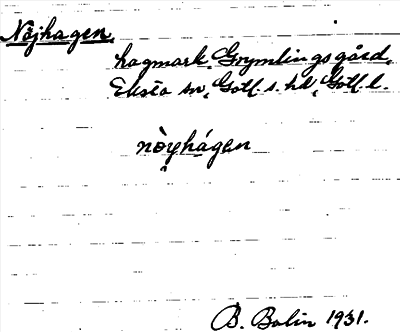 Nöjhagen,
hagmark, Grymlingsgård,
Eksta sn, Gotl. s. hd, Gotl. l.
nòy̯hágen
B. Bolin 1931.